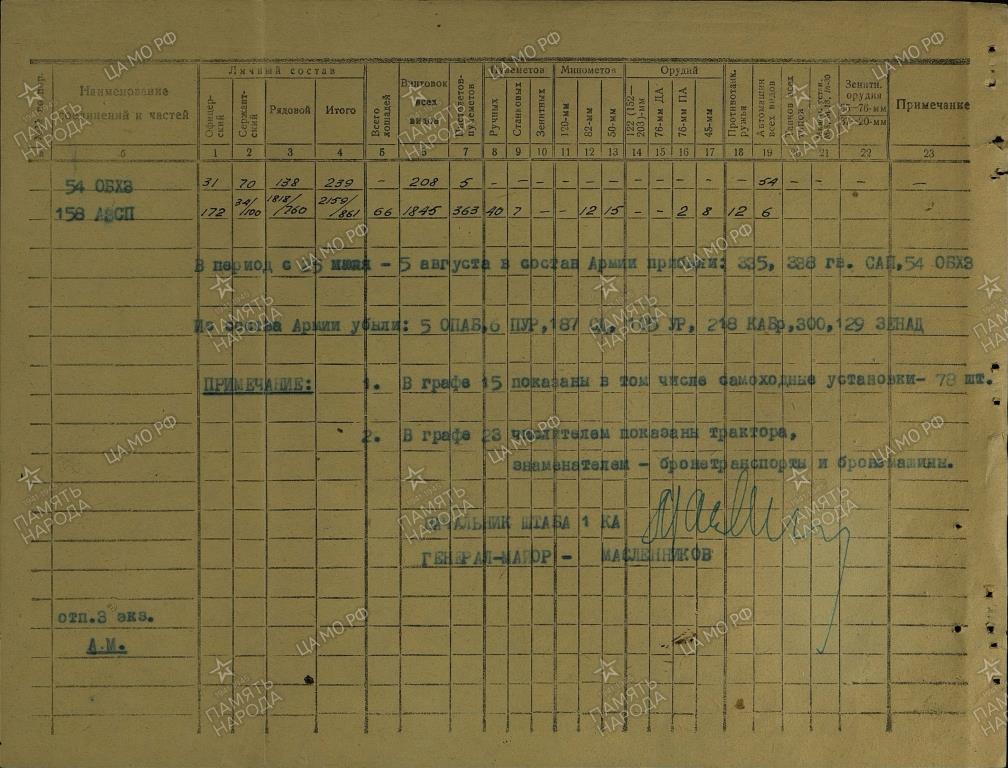 Личный состав Пулеметов Минометов Орудий
Наименование соединений и частей Офицерский Сержантский Рядовой Итого Всего лошадей Винтовок всех видов Пистолетов-пулеметов Ручных Становых Зенитных 120-мм 82-мм 50-мм 122 (152—203)-мм 76-мм ДА 76-мм ПА 45-мм Противотанк. ружья Автомашин всех видов Зенитн. орудия Примечание
б 1 2 3 4 5 6 7 8 9 10 11 12 13 14 15 16 17 18 19 20 21 22 23
54 ОБХЗ 31 70 138 239 - 208 5 - - - - - - - - - - - 54 - - - -
158 АЗСП 172 341/100 1818/760 2159/861 66 1845 363 40 7 - - 12 15 - - 2 8 12 6
В период с 25 июля - 5 августа в состав Армии прибыли: 335, 338 гв. САП, 54 ОБХЗ
Из состава Армии убыли: 5 ОПАБ, 6 ПУР, 187 УР, 218 КАБр, 300, 129 ЗЕНАД
ПРИМЕЧАНИЕ: 1. В графе 15 показаны в том числе самоходные установки- 78 шт.
2. В графе 23 числителем показаны трактора,
знаменателем - бронетранспорты и бронемашины.
НАЧАЛЬНИК ШТАБА 1 КА
ГЕНЕРАЛ-МАЙОР - МАСЛЕННИКОВ
отп.3 экз.
А.М.
ЦА МО РФ
ПАМЯТЬ НАРОДА